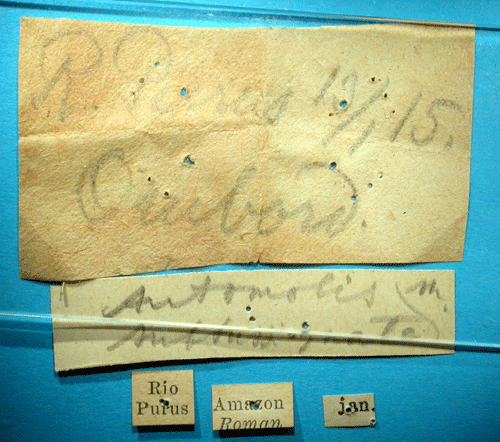 R. Purus 13/1 15.
Ombord.
Automolis m.
Rio
Purus
Amazon
Roman
jan.